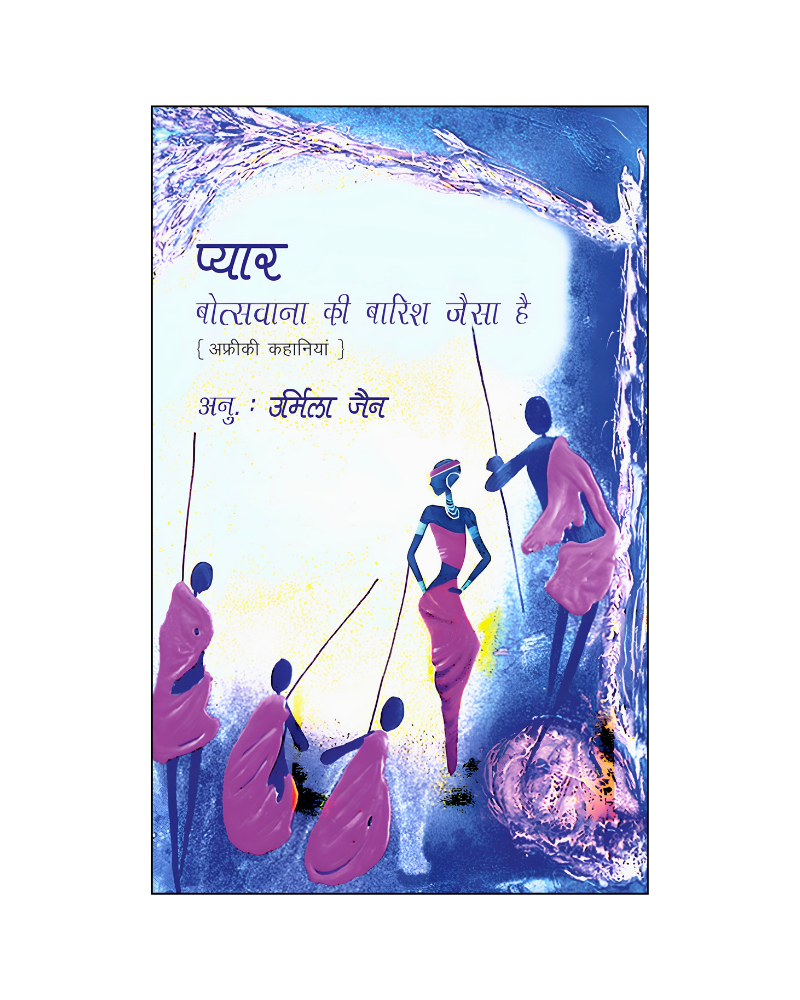 प्यार
बोत्सवाना की बारिश जैसा है
{ अफ्रीकी कहानियां }
अनु. : उर्मिला जैन